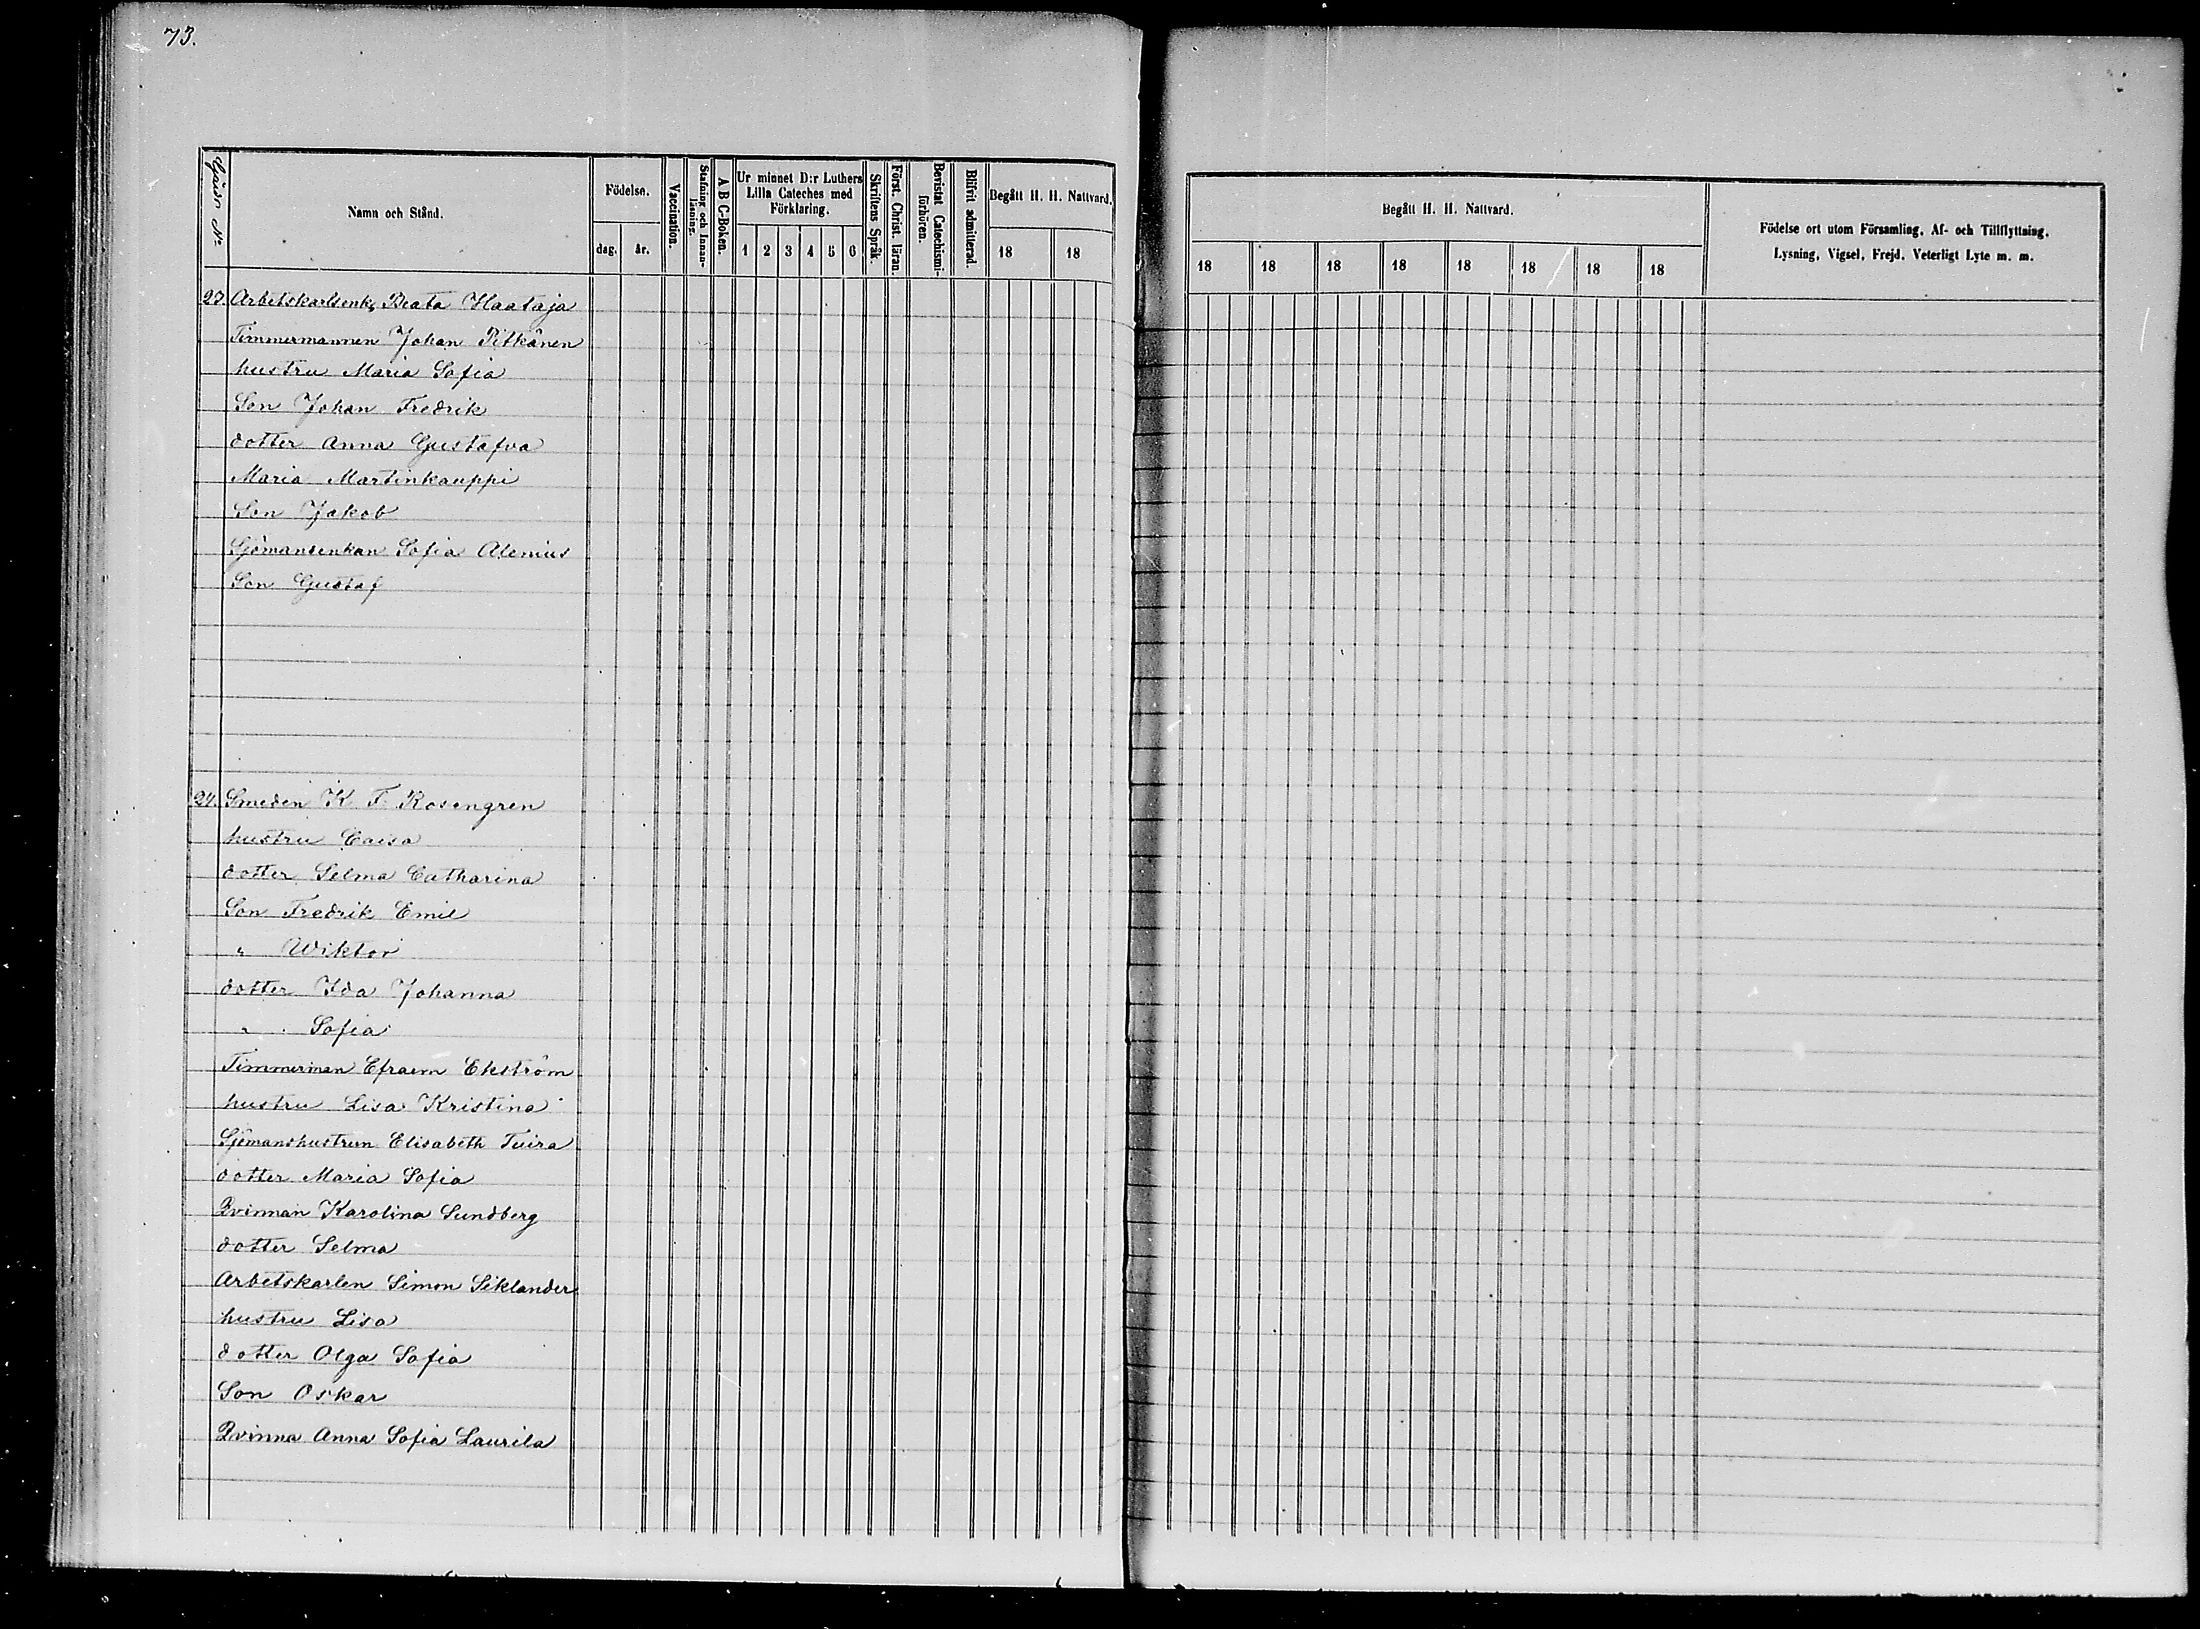 73.
Gård N:
Namn och Stånd.
Födelse.
dag.
år.
Vaccination.
Stafning och Innan-
läsning.
A B C-Boken.
Ur minnet D:r Luthers
Lilla Cateches med
Förklaring.
1 2 3 4 5 6
Skriftens Språk.
Först. Christ. läran.
Bevistat Catechismi-
förhören.
Blifvit admitterad.
Begått H. H. Nattvard.
18 18
Begått H. H. Nattvard.
18 18 18 18 18 18 18 18
Födelse ort utom Församling, Af- och Tillflyttning,
Lysning, Vigsel, Frejd, Veterligt Lyte m. m.
23. Arbetskarlsenk. Beata Haataja
Timmermannen Johan Pitkänen
hustru Maria Sofia
Son Johan Fredrik
dotter Anna Gustafva
Maria Martinkauppi
Son Jakob
Sjömansenkan Sofia Alenius
Son Gustaf
24. Smeden K F Rosengren
hustru Caisa
dotter Selma Catharina
Son Fredrik Emil
" Wiktor
dotter Ida Johanna
" Sofia
Timmerman Efraem Ekström
hustru Lisa Kristina
Sjömanshustrun Elisabeth Tuira
dotter Maria Sofia
Qvinnan Karolina Sundberg
dotter Selma
Arbetskarlen Simon Siklander
hustru Lisa
dotter Olga Sofia
Son Oskar
Qvinna Anna Sofia Laurila